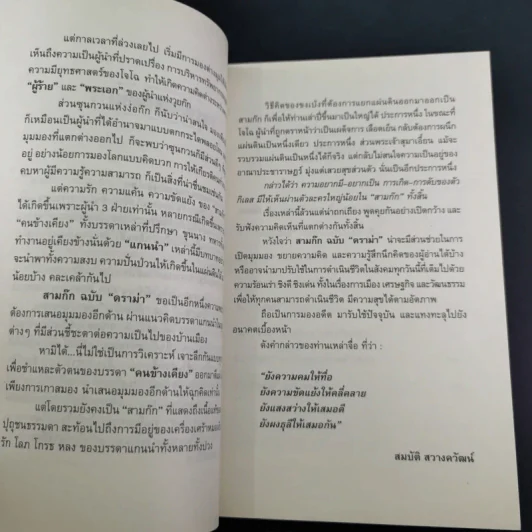 แต่กาลเวลาที่ล่วงเลยไป เริ่มมีการมอง
เห็นถึงความเป็นผู้นำที่ปราดเปรื่อง การบริหารทรัพยา
ความมียุทธศาสตร์ของโจโฉ ทำให้เกิดความคิดต่าง
"ผู้ร้าย" และ "พระเอก" ของผู้นำแห่งวุยก๊ก
ส่วนซุนกวนแห่งง่อก๊ก ก็นับว่าน่าสนใจ
ก็เหมือนเป็นผู้นำที่ได้อำนาจมาแบบตกกระไดพลอย
มุมมองที่แตกต่างออกไป ก็จะพบว่าซุนกวนก็มีส่วนลึก
อยู่ อย่างน้อยการมองโลกแบบคิดบวก การให้เกียรติ
คบหาผู้มีความรู้ความสามารถ ก็เป็นสิ่งที่น่าชื่นชม
แต่ความรัก ความแค้น ความขัดแย้ง ของ
ได้เกิดขึ้นเพราะผู้นำ 3 ฝ่ายเท่านั้น หลายกรณีเกิดขึ้น
"คนข้างเคียง" ทั้งบรรดาเหล่าที่ปรึกษา ขุนนาง
ทำงานอยู่เคียงข้างนั้นด้วย "แกนนำ" เหล่านี้มีบทบาท
จะนำพาทั้งความสงบ ความปั่นป่วนให้เกิดขึ้นในแผ่นดิน
น้อยบ้าง คละเคล้ากันไป
สามก๊ก ฉบับ "ดราม่า" ขอเป็นอีกหนึ่งความ
ต้องการเสนอมุมมองอีกด้าน ผ่านแนวคิดบรรดาแกนนำ
ต่างๆ ที่มีส่วนชี้ชะตาต่อความเป็นไปของบ้านเมือง
หามิได้...นี่ไม่ใช่เป็นการวิเคราะห์ เจาะลึกกันแบบ
เพื่อชำแหละตัวตนของบรรดา "คนข้างเคียง" ออกมา
เพียงการเกาสมอง นำเสนอมุมมองอีกด้านให้ฉุกคิดเท่านั้น
แต่โดยรวมยังคงเป็น "สามก๊ก" ที่แสดงถึงเนื้อแท้
ปุถุชนธรรมดา สะท้อนไปถึงการมีอยู่ของเครื่องเศร้าหมอง
รัก โลภ โกรธ หลง ของบรรดาแกนนำทั้งหลายทั้งปวง
วิธีคิดของขงเบ้งที่ต้องการแยกแผ่นดินออกมาออกเป็น
สามก๊ก ก็เพื่อให้ท่านเล่าปี่ขึ้นมาเป็นใหญ่ได้ ประการหนึ่ง ในขณะที่
โจโฉ ผู้นำที่ถูกตราหน้าว่าเป็นเผด็จการ เลือดเย็น กลับต้องการผนึก
แผ่นดินเป็นหนึ่งเดียว ประการหนึ่ง ส่วนพระเจ้าสุมาเอี๋ยน แม้จะ
รวบรวมแผ่นดินเป็นหนึ่งได้ก็จริง แต่กลับไม่สนใจความเป็นอยู่ของ
อาณาประชาราษฎร์ มุ่งแต่เสวยสุขส่วนตัว นั่นก็อีกประการหนึ่ง
กล่าวได้ว่า ความอยากมี-อยากเป็น การเกิด-การดับของตัว
กิเลส มีให้เห็นผ่านตัวละครใหญ่น้อยใน "สามก๊ก" ทั้งสิ้น
เรื่องเหล่านี้ล้วนแต่น่าถกเถียง พูดคุยกันอย่างเปิดกว้าง และ
รับฟังความคิดเห็นที่แตกต่างกันทั้งสิ้น
หวังใจว่า สามก๊ก ฉบับ "ดราม่า" น่าจะมีส่วนช่วยในการ
เปิดมุมมอง ขยายความคิด และความรู้สึกนึกคิดของผู้อ่านได้บ้าง
หรืออาจนำมาปรับใช้ในการดำเนินชีวิตในสังคมทุกวันนี้ที่เต็มไปด้วย
ความร้อนเร่า ชิงดี ชิงเด่น ทั้งในเรื่องการเมือง เศรษฐกิจ และวัฒนธรรม
เพื่อให้ทุกคนสามารถดำเนินชีวิต มีความสุขได้ตามอัตภาพ
ถือเป็นการมองอดีต มารับใช้ปัจจุบัน และแทงทะลุไปยัง
อนาคตเบื้องหน้า
ดังคำกล่าวของท่านเหล่าจื่อ ที่ว่า :
"ยังความคมให้ทื่อ
ยังความขัดแย้งให้คลี่คลาย
ยังแสงสว่างให้เสมอดี
ยังผงธุลีให้เสมอกัน"
สมบัติ สวางควัฒน์